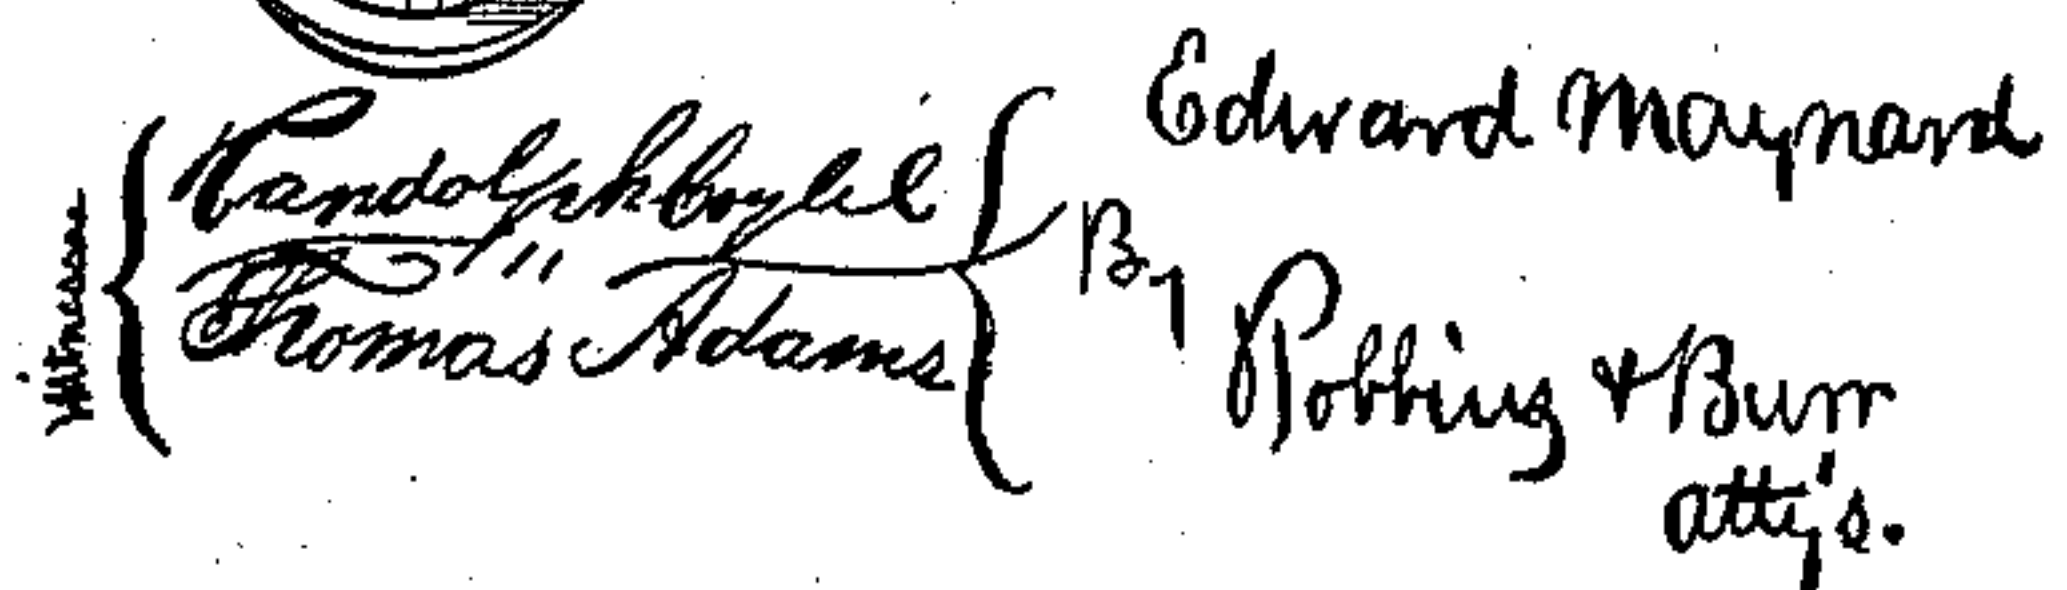 Witnesses
Randolph Coyle
Thomas Adams
Edward Maynard
By
Robbins & Burr
Atty's.